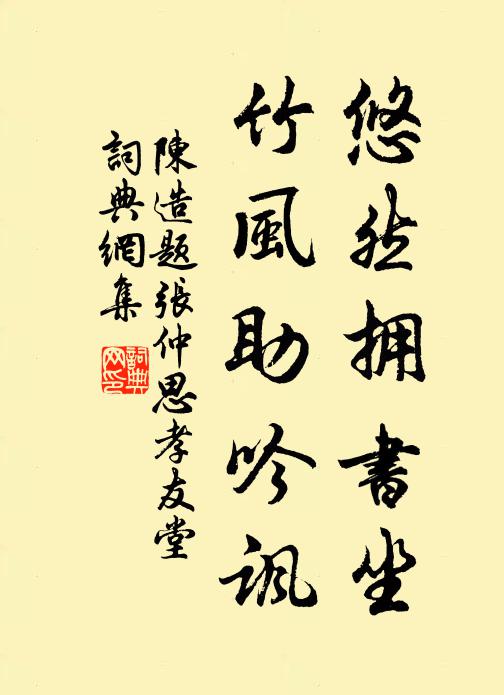 悠然拥書坐
竹風助吟諷
陳造題張仲思孝友堂
詞典網集
詞典
网印